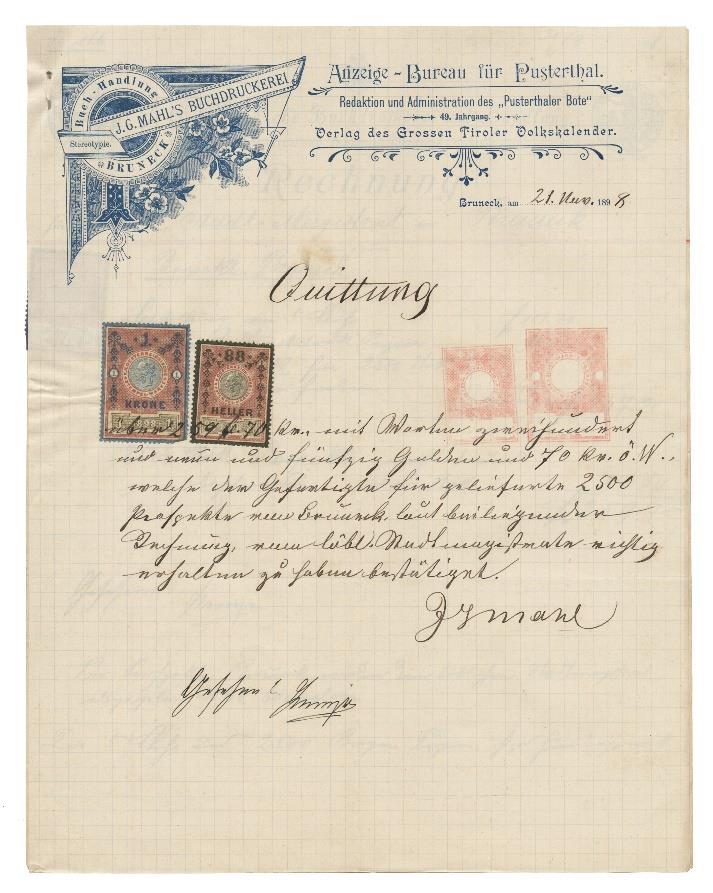 Buch-Handlung
J.G. MAHL'S BUCHDRUCKEREI
Stereotypie.
BRUNECK
Anzeige-Bureau für Pusterthal.
Redaktion und Administration des „Pusterthaler Bote“
49. Jahrgang.
Verlag des Grossen Tiroler Volkskalender.
Bruneck, am 21. Nov. 1898
Quittung
1
1 1
KRONE
88
HELLER
über 259 fl 70 Kr., mit Worten zweihundert
und neun und fünfzig Gulden und 70 Kr. ö. W.,
welche der Gefertigte für gelieferte 2500
Prospekte von Bruneck, laut beiliegender
Rechnung, vom löbl. Stadtmagistrate richtig
erhalten zu haben bestätiget.
JGMahl
Gesehen